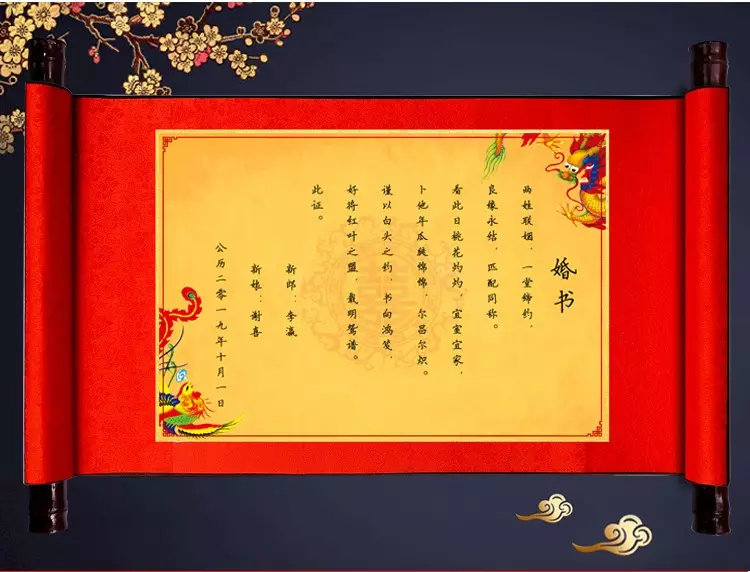 婚书
两姓联姻，一堂缔约，
良缘永结，匹配同称。
看此日桃花灼灼，宜室宜家，
卜他年瓜瓞绵绵，尔昌尔炽。
谨以白头之约，书向鸿笺，
好将红叶之盟，载明鸳谱。
此证。
新郎：李瀛
新娘：谢喜
公历二零一九年十月一日